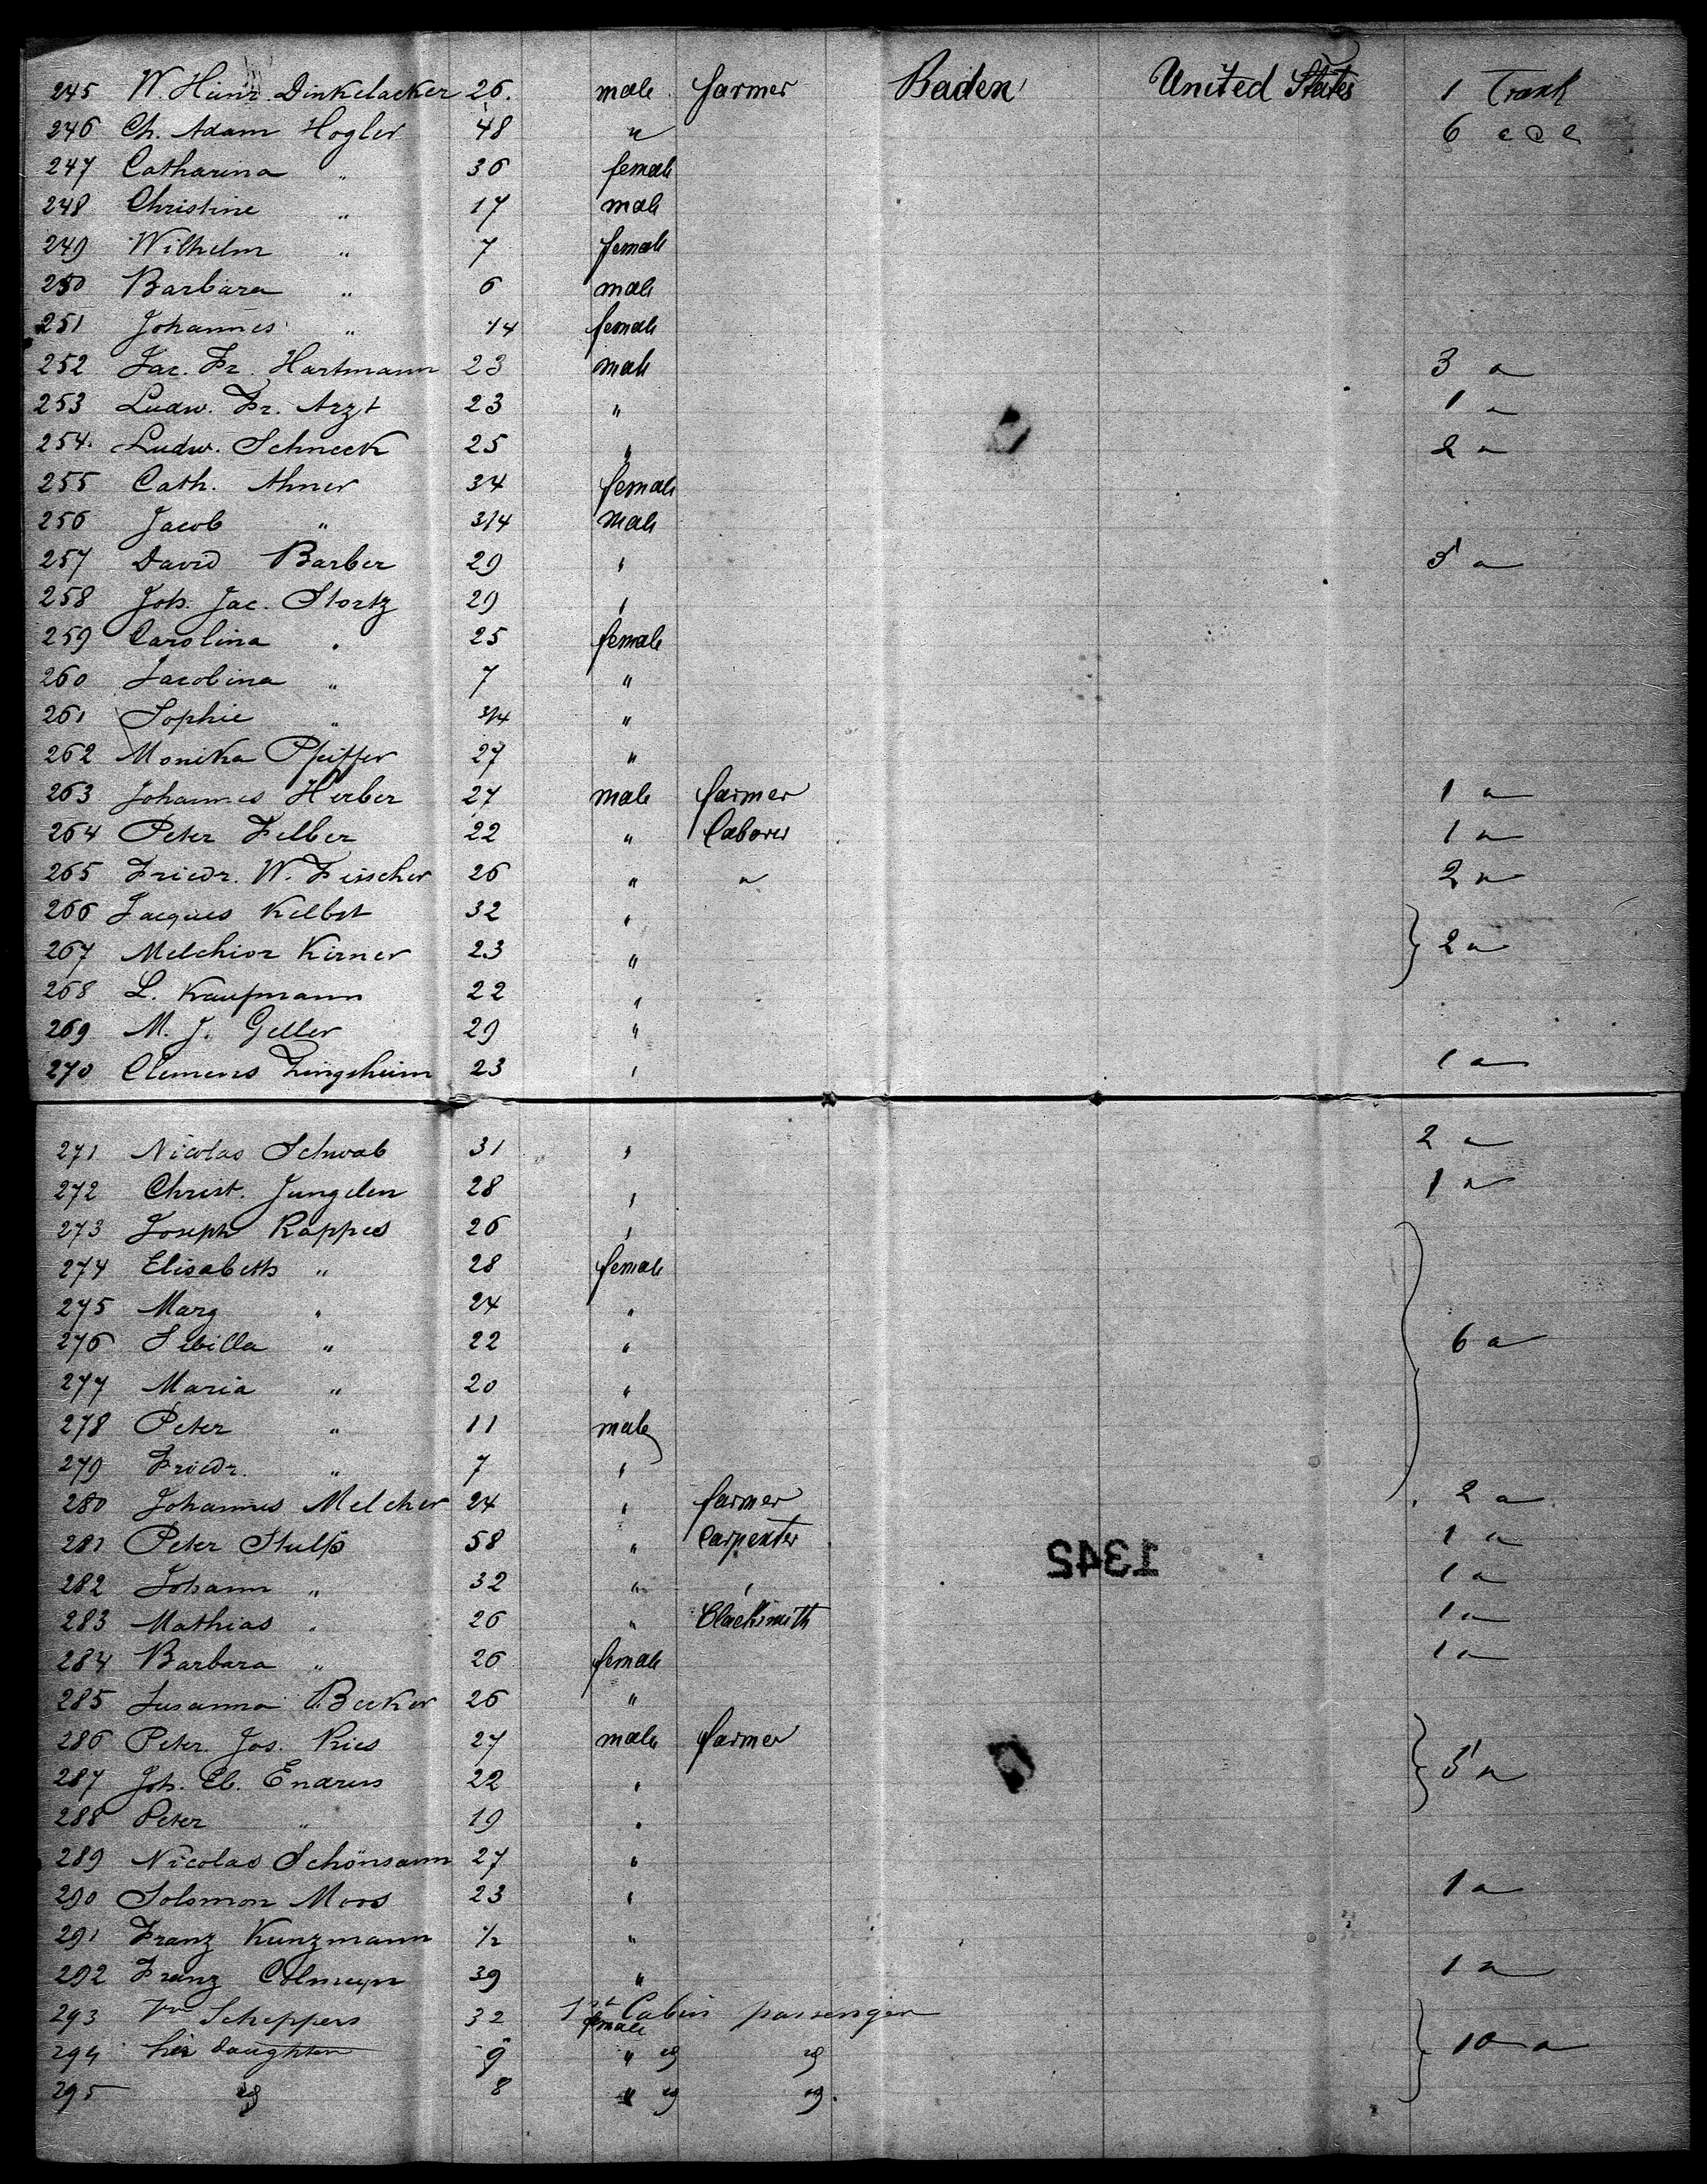 245 W. Heinr. Dinkelacker 26. male farmer Baden United States 1 Trunk
246 Ch. Adam Hogler 48 " 6
247 Catharina " 36 female
248 Christine " 17 male
249 Wilhelm " 7 female
250 Barbara " 6 male
251 Johannes " 1/4 female
252 Jac. Fr. Hartmann 23 male 3 "
253 Ludw. Fr. Arzt 23 " 1 "
254. Ludw. Schneck 25 " 2 "
255 Cath. Ahner 34 female
256 Jacob " 3/4 male
257 David Barber 29 " 5 "
258 Joh. Jac. Stortz 29 "
259 Carolina " 25 female
260 Jacobina " 7 "
261 Sophie " 3/4 "
262 Monika Pfeiffer 27 "
263 Johannes Herber 27 male farmer 1 "
264 Peter Felber 22 " Laborer 1 "
265 Friedr. W. Fisscher 26 " " 2 "
266 Jacques Kelbst 32 "
267 Melchior Kirner 23 " 2 "
268 L. Kaufmann 22 "
269 M. J. Geller 29 "
270 Clemens Zingsheim 23 " 1 "
271 Nicolas Schwab 31 " 2 "
272 Christ. Jungelen 28 " 1 "
273 Joseph Kappes 26 "
274 Elisabeth " 28 female
275 Marg " 24 "
276 Sibilla " 22 " 6 "
277 Maria " 20 "
278 Peter " 11 male
279 Friedr. " 7 "
280 Johannes Melcher 24 " farmer 2 "
281 Peter Stulb 58 " Carpenter 1 "
1342
282 Johann " 32 " " 1 "
283 Mathias " 26 " Blacksmith 1 "
284 Barbara " 26 female 1 "
285 Susanna Becker 26 "
286 Peter Jos. Ries 27 male farmer
287 Joh. Endres 22 " 5 "
288 Peter " 19 "
289 Nicolas Schönsann 27 "
290 Solomon Moos 23 " 1 "
291 Franz Kunzmann 1/2 "
292 Franz 39 " 1 "
293 Scheppers 32 1st Cabin passenger
female
294 her daughter 9 " 10 "
295 8 "